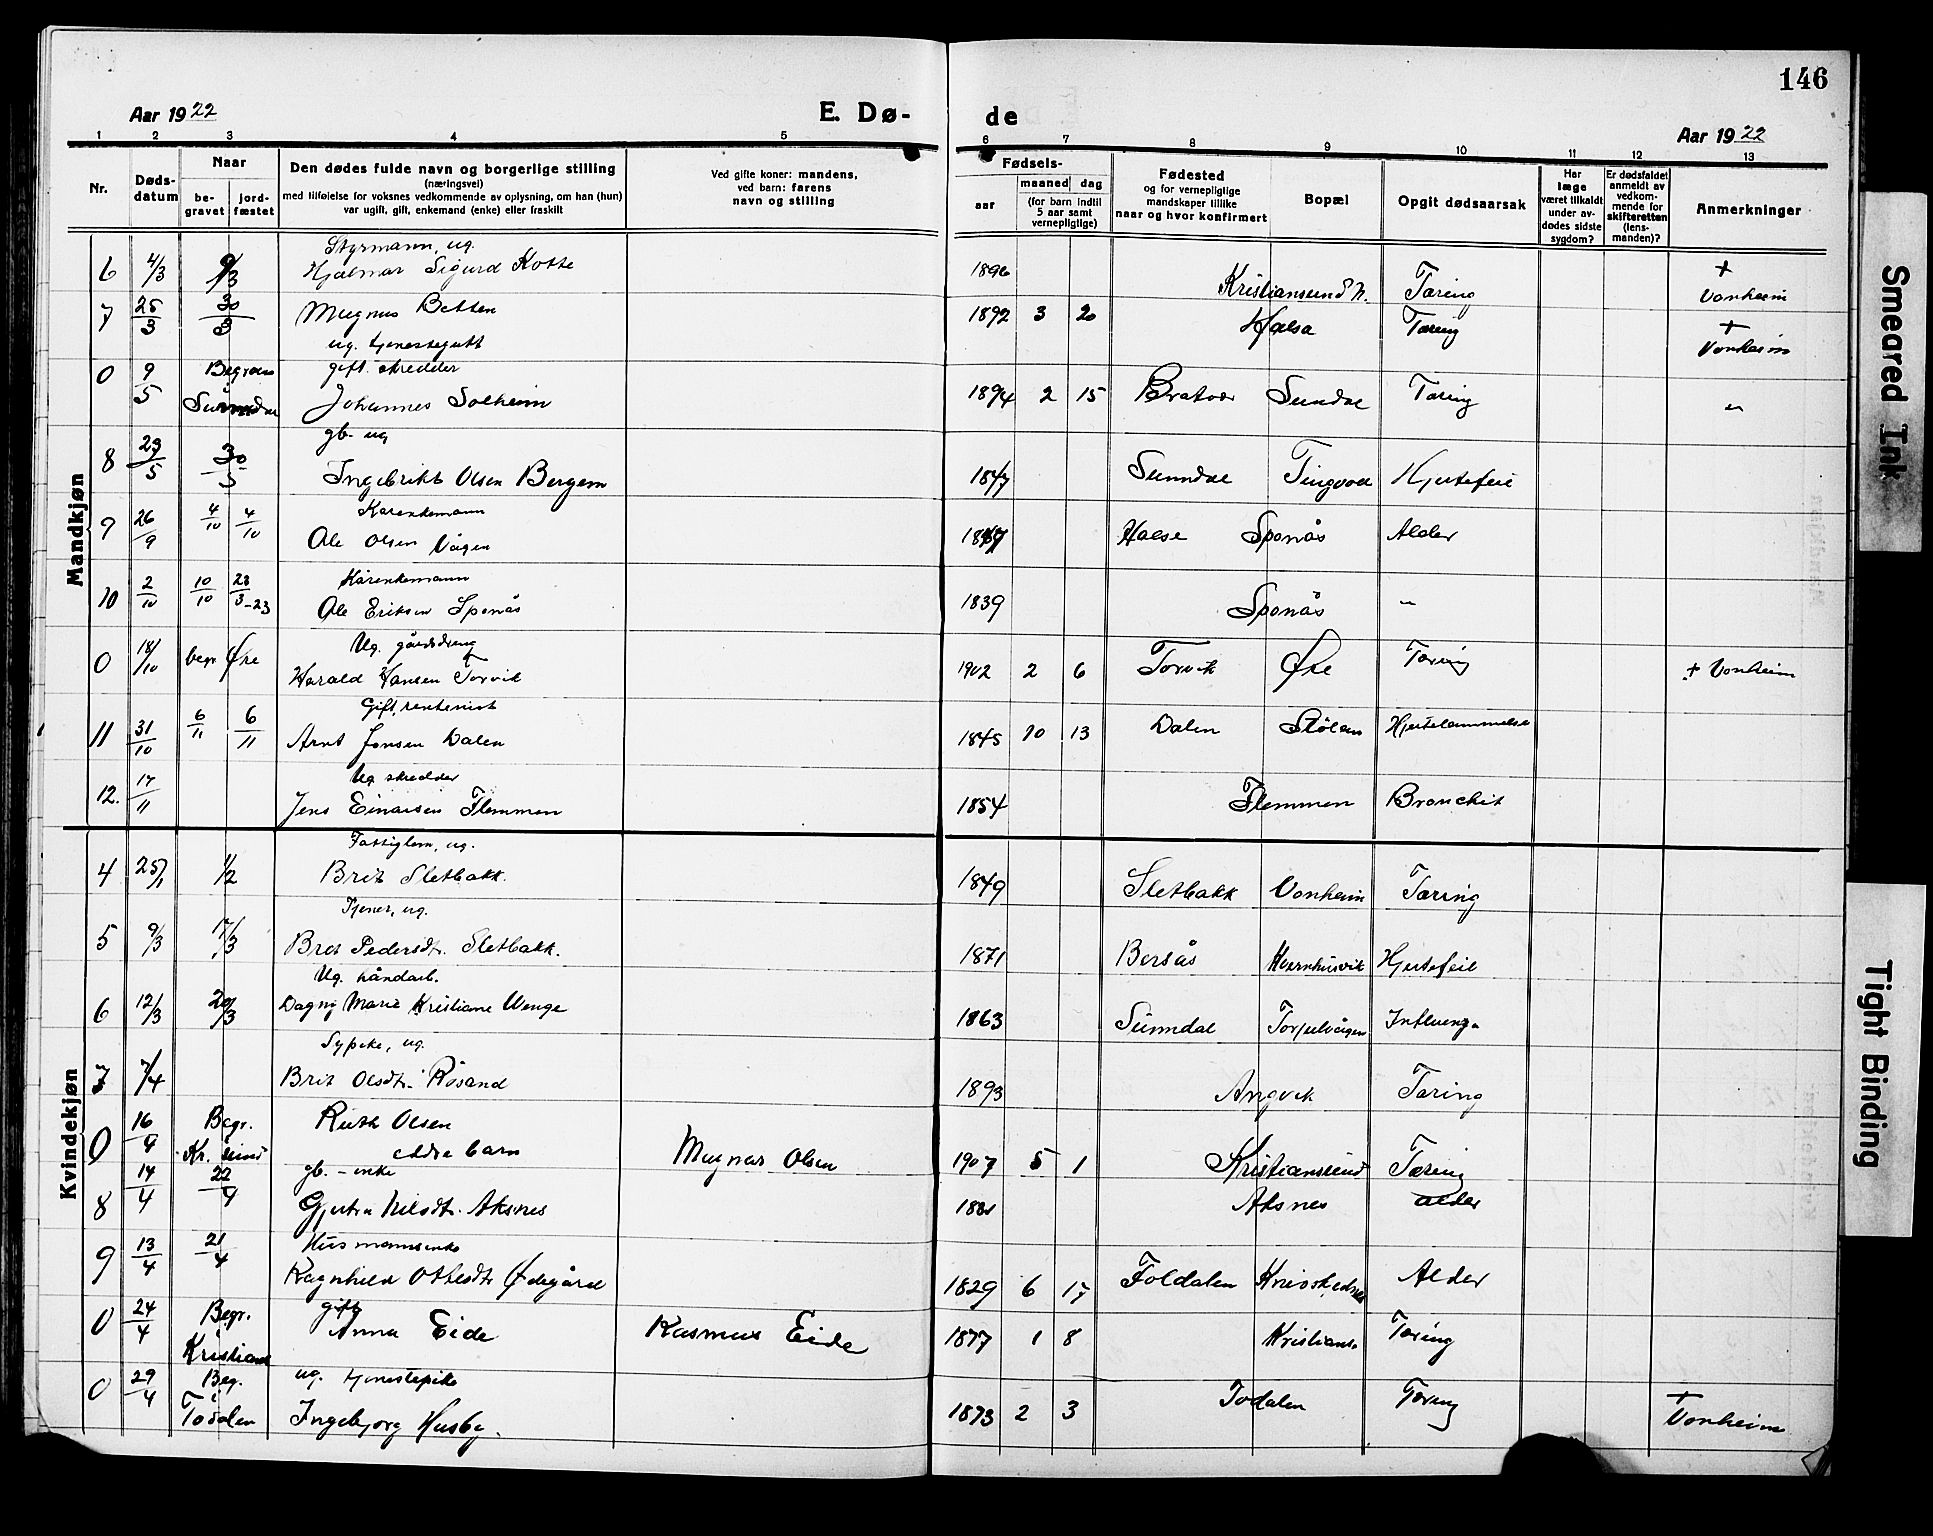 146
Aar 1922
E. Dø-
de
Aar 1922
1 2 3 4 5 6 7 8 9 10 11 12 13
Nr.
Dødsdatum
Naar
begravet
jordfæstet
Den dødes fulde navn og borgerlige stilling
(næringsvei)
med tilføielse for voksnes vedkommende av oplysning, om han (hun)
var ugift, gift, enkemand (enke) eller fraskilt
Ved gifte koner: mandens,
ved barn: farens
navn og stilling
Fødsels-
aar
maaned
dag
(for barn indtil
5 aar samt
vernepligtige)
Fødested
og for vernepligtige
mandskaper tillike
naar og hvor konfirmert
Bopæl
Opgit dødsaarsak
Har
læge
været tilkaldt
under av-
dødes sidste
sygdom?
Er dødsfaldet
anmeldt av
vedkom-
mende for
skifteretten
(lens-
manden)?
Anmerkninger
Mandkjøn
Styrmann, ug.
6 4/3 9/3 Hjalmar Sigurd Kotte 1896 Kristiansund N. Tæring + Vonheim
7 25/3 30/3 Magnus Betten 1892 3 20 Halsa Tæring + Vonheim
ug. tjenestegutt
0 9/5 Begraves i Surndal gift. skredder
Johannes Solheim 1894 2 15 Bratvær Sundal Tæring "
gb. ug
8 23/5 30/5 Ingebrikt Olsen Bergem 1847 Sunndal Tingvoll Hjertefeil
Kårenkemann
9 26/9 4/10 4/10 Ole Olsen Vågen 1847 Halse Sponås Alder
Kårenkemann
10 2/10 10/10 23/3-23 Ole Eriksen Sponås 1839 Sponås "
Ug. gårdsdreng
0 18/10 begr Øre Harald Hansen Torvik 1902 2 6 Torvik Øre Tæring + Vonheim
Gift, rentenist
11 31/10 6/11 6/11 Arnt Jonsen Dalen 1845 10 13 Dalen Stølen Hjertelammelse
Ug skredder
12. 17/11 Jens Einarsen Flemmen 1854 Flemmen Bronchit
Kvindekjøn
Fattiglem, ug.
4 25/1 1/2 Brit Sletbakk. 1849 Sletbakk Vonheim Tæring
Tjener, ug.
5 9/3 17/3 Brit Pedersdt. Sletbakk. 1871 Bersås Kvernhusvik Hjertefeil
Ug. håndarb.
6 12/3 20/3 Dagny Marie Kristiane Wenge 1863 Sunndal Torjulvågen Influenza
Sypike, ug.
7 7/4 Brit Olsdt. Røsand 1893 Angvik Tæring
0 16/4 Begr. Kr. sund Ruth Olsen
eldre barn Magnar Olsen 1907 5 1 Kristiansund Tæring
gb. - enke
8 14/4 22/4 Gjertru Nilsdt. Aksnes Aksnes alder
Husmannsenke
9 13/4 21/4 Ragnhild Ottesdt. Ødegård 1829 6 17 Foldalen Alder
gift
0 24/4 Begr. i Kristians Anna Eide Rasmus Eide 1877 1 8 Kristians. Tæring
ug. tjenestepike
0 29/4 Beg. i Todalen Ingebjorg Husby. 1873 2 3 Todalen Tæring + Vonheim
Smeared Ink
Tight Binding